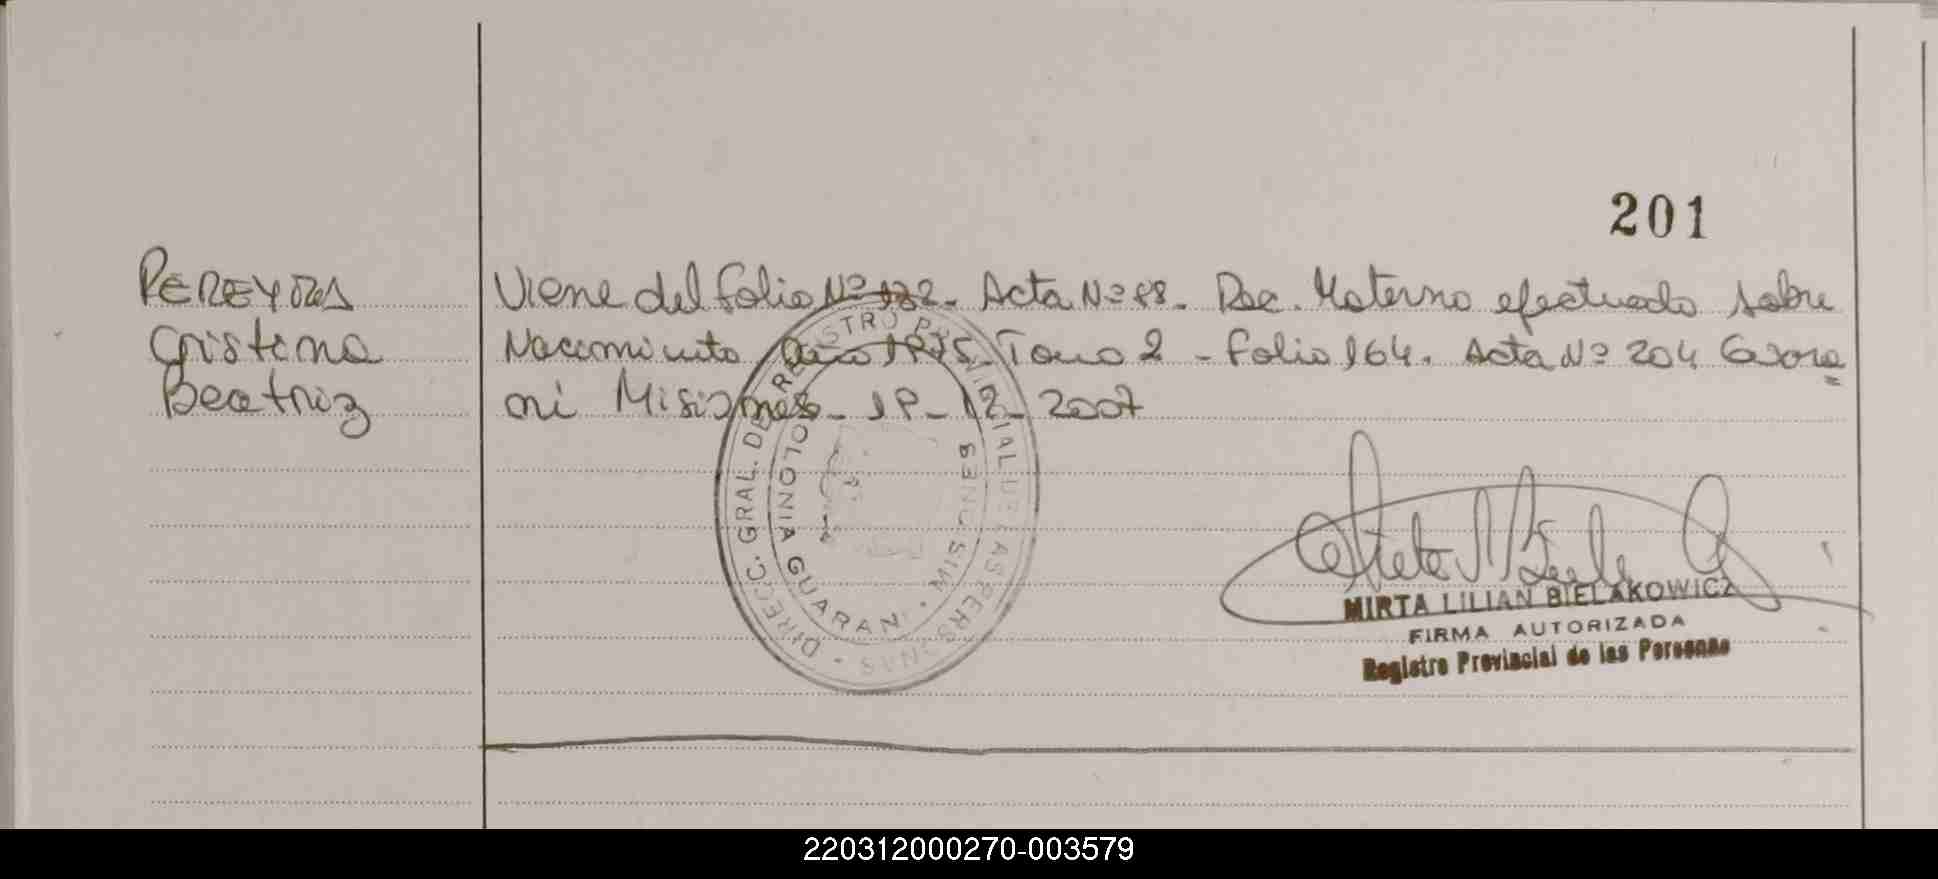 201
PEREYRA
Cristina
Beatriz
Viene del folio Nº 132. Acta Nº 88. Rec. Materno efectuado sobre
Nacimiento Año 1975 Tomo 2 - Folio 164. Acta Nº 204 Guara
ni Misiones - 19 - 12 - 2007
DIRECC. GRAL. DE REGISTRO PROVINCIAL DE LAS PERSONAS
COLONIA GUARANI · MISIONES
MIRTA LILIAN BIELAKOWICZ
FIRMA AUTORIZADA
Registro Provincial de las Personas
220312000270-003579